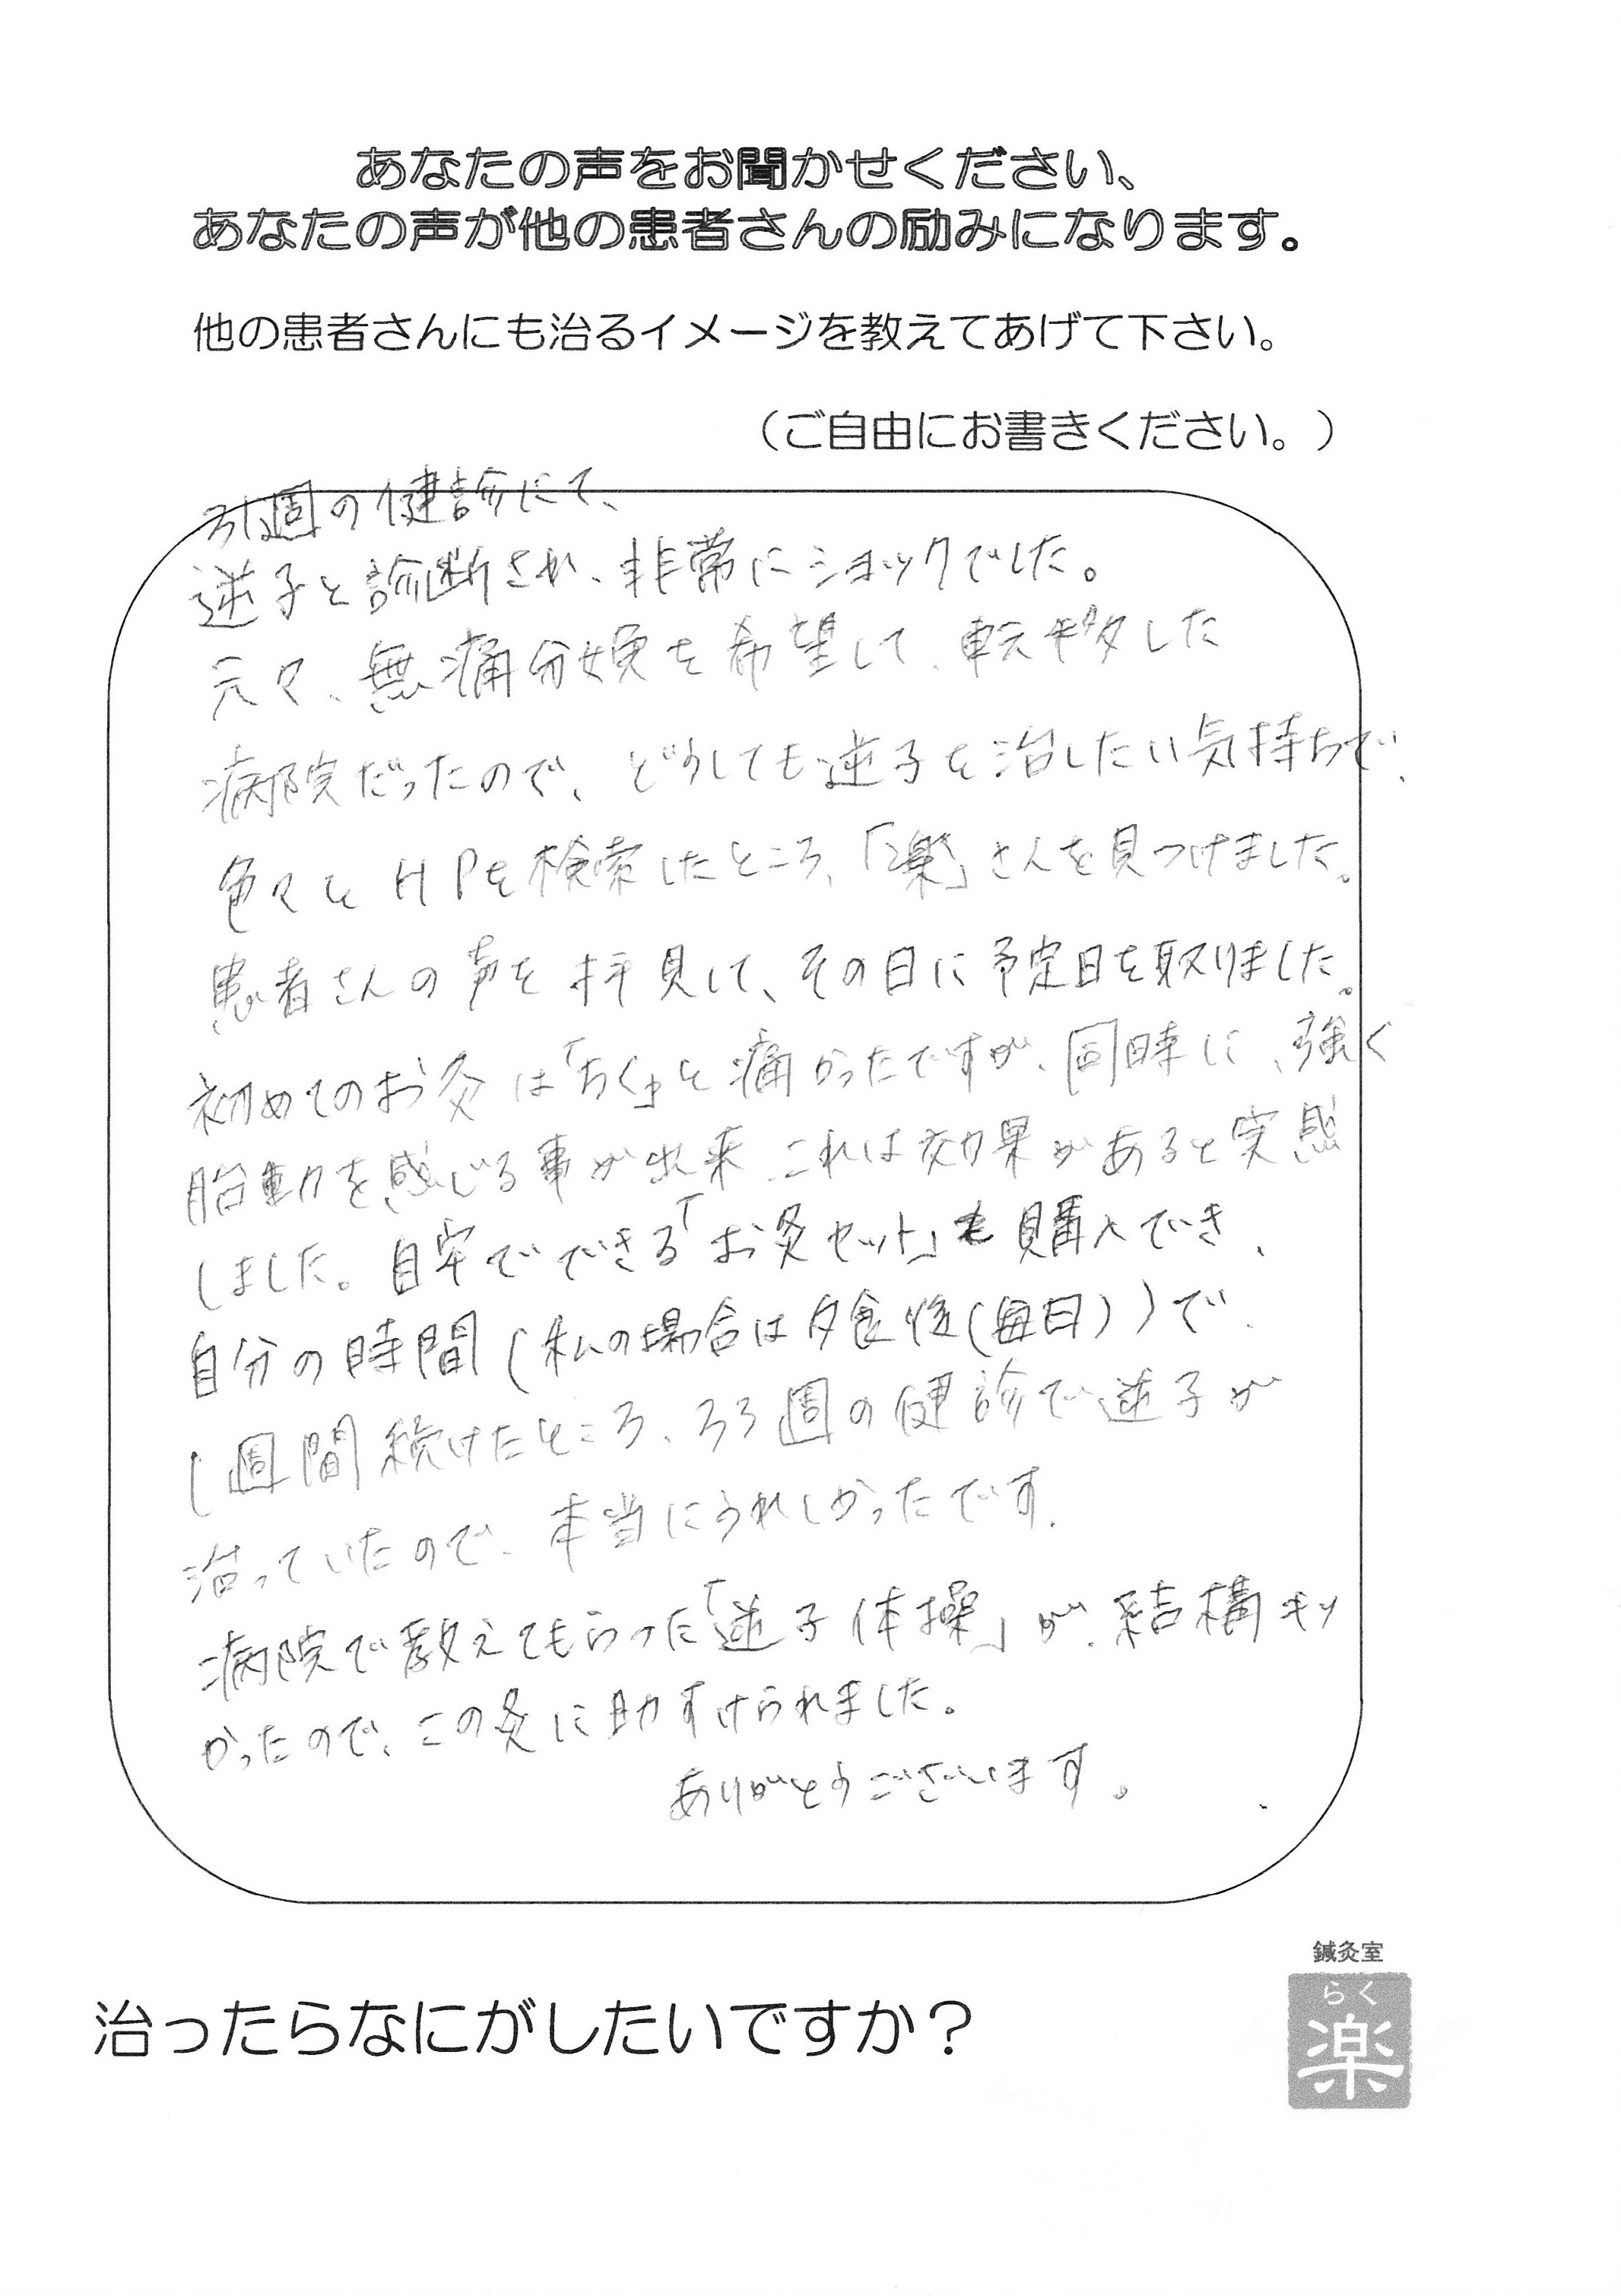 あなたの声をお聞かせください、
あなたの声が他の患者さんの励みになります。
他の患者さんにも治るイメージを教えてあげて下さい。
(ご自由にお書きください。)
31週の健診にて、
逆子と診断され、非常にショックでした。
元々、無痛分娩を希望して、転移した
病院だったので、どうしても逆子を治したい気持ちで、
色々とHPを検索したところ、「楽」さんを見つけました。
患者さんの声を拝見して、その日に予定日を取りました。
初めてのお灸は「ちく」と痛かったですが、同時に、強く
胎動を感じる事が出来、これは効果があると実感
しました。自宅でできる「お灸セット」も購入でき、
自分の時間(私の場合は夕食後(毎日))で、
1週間続けたところ、33週の健診で逆子が
治っていたので、本当にうれしかったです。
病院で教えてもらった「逆子体操」が、結構キツ
かったので、この灸に助すけられました。
ありがとうございます。
治ったらなにがしたいですか?
鍼灸室
らく
楽